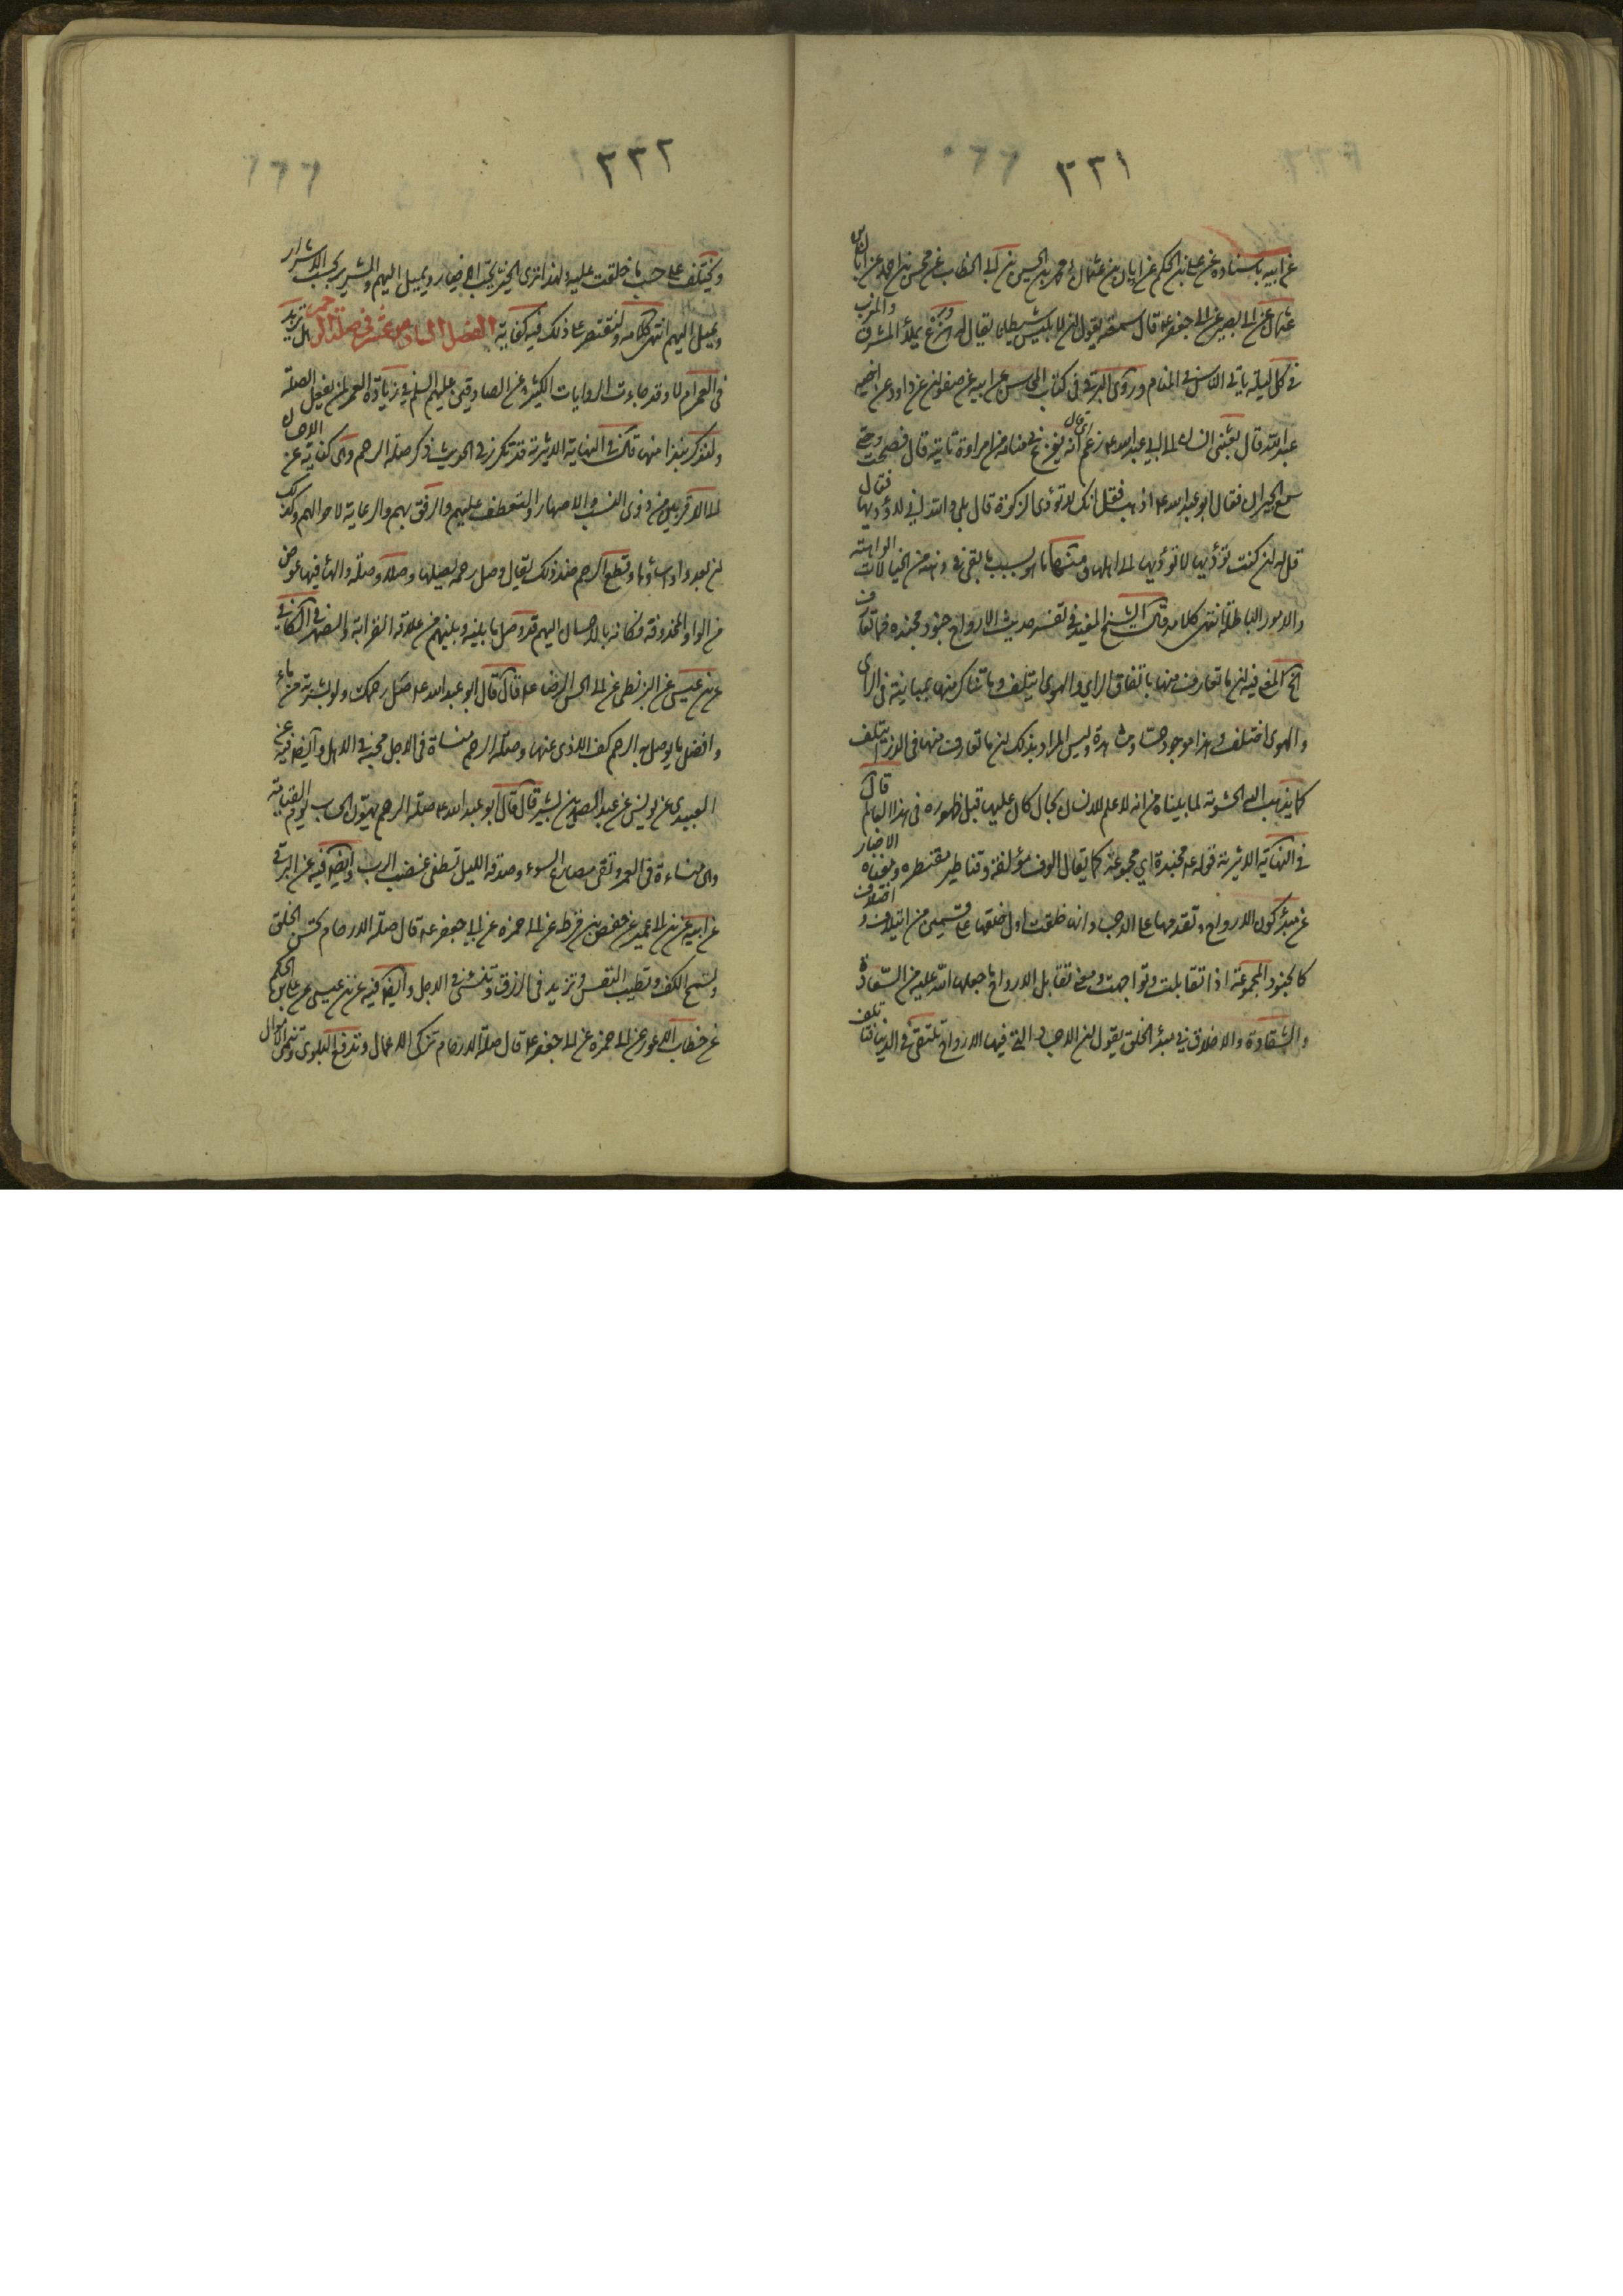 ٢٢١
عن ابيه باسناده عن علي بن الحكم عن ابان بن عثمان ومحمد بن الحسين بن ابي الخطاب عن محسن بن احمد عن ابان بن
عثمان عن ابي بصير عن ابي جعفر ع قال سمعته يقول ان لابليس شيطانا يقال له هزع يملأ المشرق والمغرب
في كل ليلة ياتي الناس في المنام وروى البرقي في كتاب المحاسن عن ابيه عن صفوان عن داود عن اخيه
عبد الله قال بعثني انسان الى ابي عبد الله ع زعم انه يفزع في منامه من امراة تاتيه قال فصحت حتى
سمع الجيران فقال ابو عبد الله ع اذهب فقل انك لا تؤدى الزكوة قال بلى والله اني لاؤديها فقال
قل له ان كنت تؤديها لا تؤديها الى اهلها من الخيالات الواهية
والامور الباطلة انتهى كلامه قال الشيخ المفيد في تفسير حديث الارواح جنود مجنده فما تعارف
الخ المعنى فيه ان ما تعارف منها باتفاق الراي والهوى ايتلف وما تناكر منها بمباينة في الراى
والهوى اختلف وهذا موجود حسا ومشاهدة وليس المراد بذلك ان ما تعارف منها في الذر ايتلف
كما يذهب اليه الحشوية لما بيناه من انه لا علم للانسان بحال كان عليها قبل ظهوره في هذا العالم قال
في النهاية الاثيرية قوله ع مجندة اي مجموعة كما يقال الوف مؤلفة وقناطير مقنطره ومعناه الاخبار
عن مبدء كون الارواح وتقدمها على الاجساد وانها خلقت اول خلقها على قسمين من ايتلاف واختلاف
كالجنود المجموعة اذا تقابلت وتواجهت ومعنى تقابل الارواح ما جعلها الله عليه من السعادة
والشقاوة والاخلاق في مبدء الخلق يقول ان الاجساد التي فيها الارواح تلتقي في الدنيا فتاتلف
٢٢٢
وتختلف على حسب ما خلقت عليه ولهذا ترى الخير يحب الاخيار ويميل اليهم والشرير يحب الاشرار
ويميل اليهم انتهى كلامه ولنقتصر على ذلك فيه كفاية الفصل السادس عشر في صلة الرحم هل تزيد
في العمر ام لا وقد جاءت الروايات الكثيرة عن الصادقين عليهم السلم في زيادة العمر لمن يفعل الصلة
ولنذكر نبذا منها قال في النهاية الاثيرية قد تكرر في الحديث ذكر صلة الرحم وهى كناية عن الاحسان
الى الاقربين من ذوى النسب والاصهار والتعطف عليهم والرفق بهم والرعاية لاحوالهم وكذلك
ان بعدوا واساؤا وقطع الرحم ضد ذلك يقال وصل رحمه يصلها وصلا وصلة والهاء فيها عوض
من الواو المحذوفة فكانه بالاحسان اليهم قد وصل ما بينه وبينهم من علاقة القرابة والصهر في الكافي
عن بن عيسى عن البزنطى عن ابي الحسن الرضا ع قال قال ابو عبد الله ع صل رحمك ولو بشربة من ماء
وافضل ما يوصل به الرحم كف الاذى عنها وصلة الرحم منساة في الاجل محبة في الاهل وايضا فيه عن
العبيدى عن يونس عن عبد الصمد بن بشير قال قال ابو عبد الله ع صلة الرحم تهون الحساب يوم القيامة
وهى منساءة في العمر وتقى مصارع السوء وصدقة الليل تطفى غضب الرب وايضا فيه عن البرقي
عن ابيه عن بن ابي عمير عن حفص بن قرط عن ابي حمزه عن ابي جعفر ع قال صلة الارحام تحسن الخلق
وتسمح الكف وتطيب النفس وتزيد في الرزق وتنسئ في الاجل وايضا فيه عن بن عيسى عن علي بن الحكم
عن خطاب الاعور عن ابي حمزه عن ابي جعفر ع قال صلة الارحام تزكى الاعمال وتدفع البلوى وتنمى الاموال